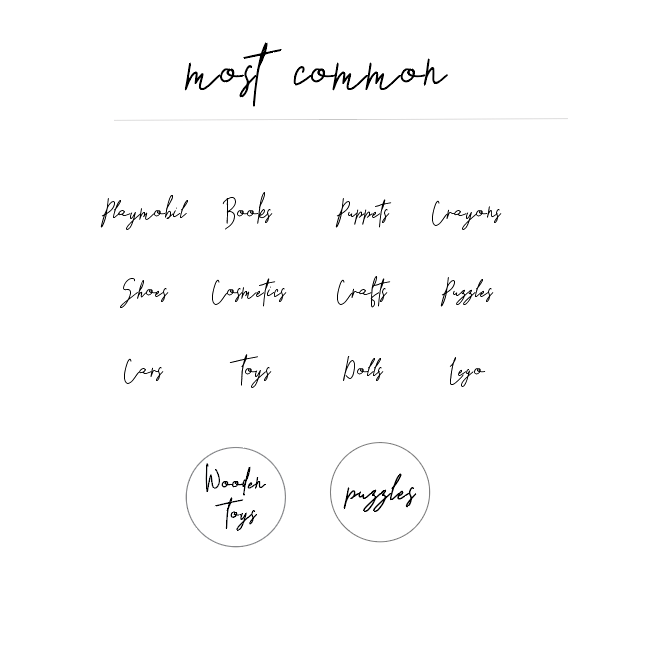 most common
Playmobil Books Puppets Crayons
Shoes Cosmetics Crafts Puzzles
Cars Toys Dolls Lego
Wooden
Toys
puzzles